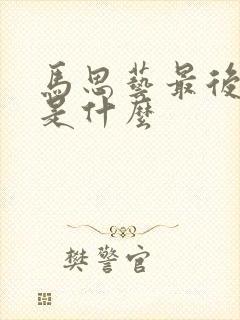 馬思藝最後
是什麼
樊警官